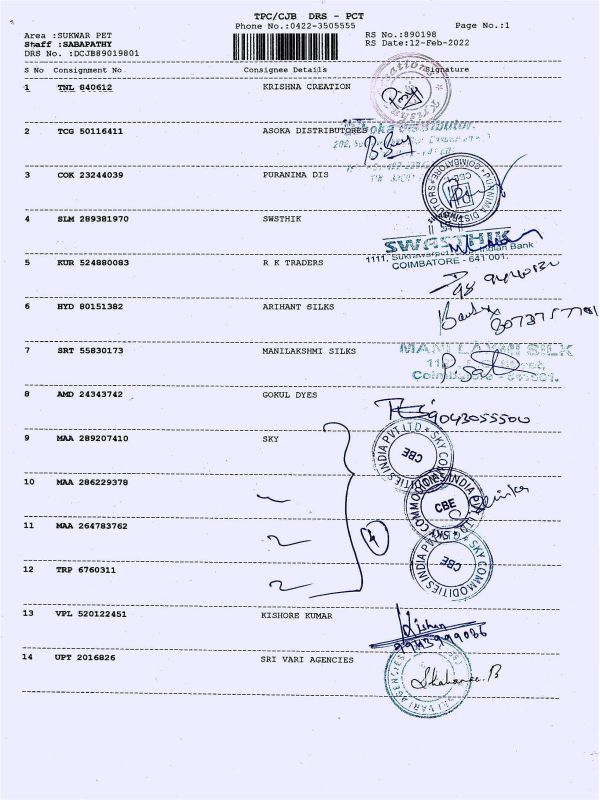 TPC/CJB DRS - PCT
Phone No.:0422-3505555 Page No.:1
Area :SUKWAR PET RS No.:890198
Staff :SABAPATHY RS Date:12-Feb-2022
DRS No. :DCJB89019801
S No Consignment No Consignee Details Signature
1 TNL 840612 KRISHNA CREATION
2 TCG 50116411 ASOKA DISTRIBUTORES
3 COK 23244039 PURANIMA DIS
PURNIMA DISTRIBUTORS COIMBATORE
CBE
4 SLM 289381970 SWSTHIK
SWASTHIK
Indian Bank
COIMBATORE - 641 001.
5 KUR 524880083 R K TRADERS
6 HYD 80151382 ARIHANT SILKS
8073757781
7 SRT 55830173 MANILAKSHMI SILKS
MANI LAXMI SILK
8 AMD 24343742 GOKUL DYES
9043055500
9 MAA 289207410 SKY
SKY COMMODITIES INDIA PVT LTD
CBE
10 MAA 286229378
SKY COMMODITIES INDIA PVT LTD
CBE
11 MAA 264783762
4
SKY COMMODITIES INDIA PVT
CBE
12 TRP 6760311
13 VPL 520122451 KISHORE KUMAR
Kishan
14 UPT 2016826 SRI VARI AGENCIES
SRI VARI AGENCIES